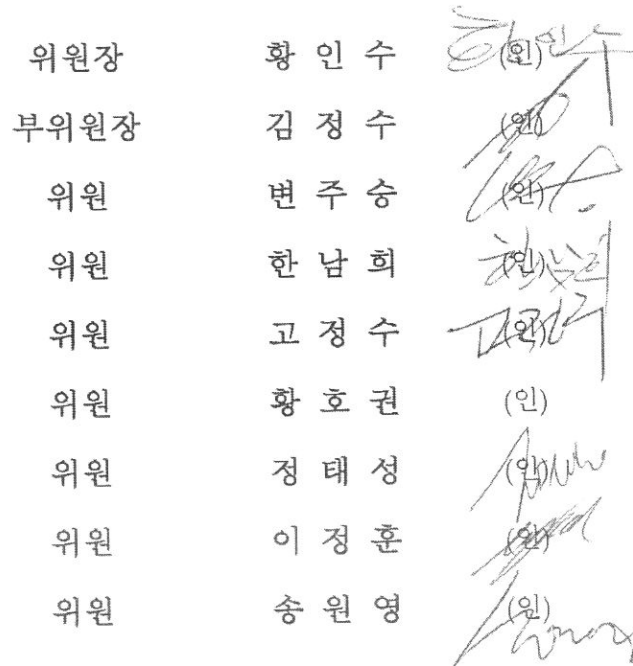 위원장 황 인 수 (인)
부위원장 김 정 수 (인)
위원 변 주 승 (인)
위원 한 남 희 (인)
위원 고 정 수 (인)
위원 황 호 권 (인)
위원 정 태 성 (인)
위원 이 정 훈 (인)
위원 송 원 영 (인)